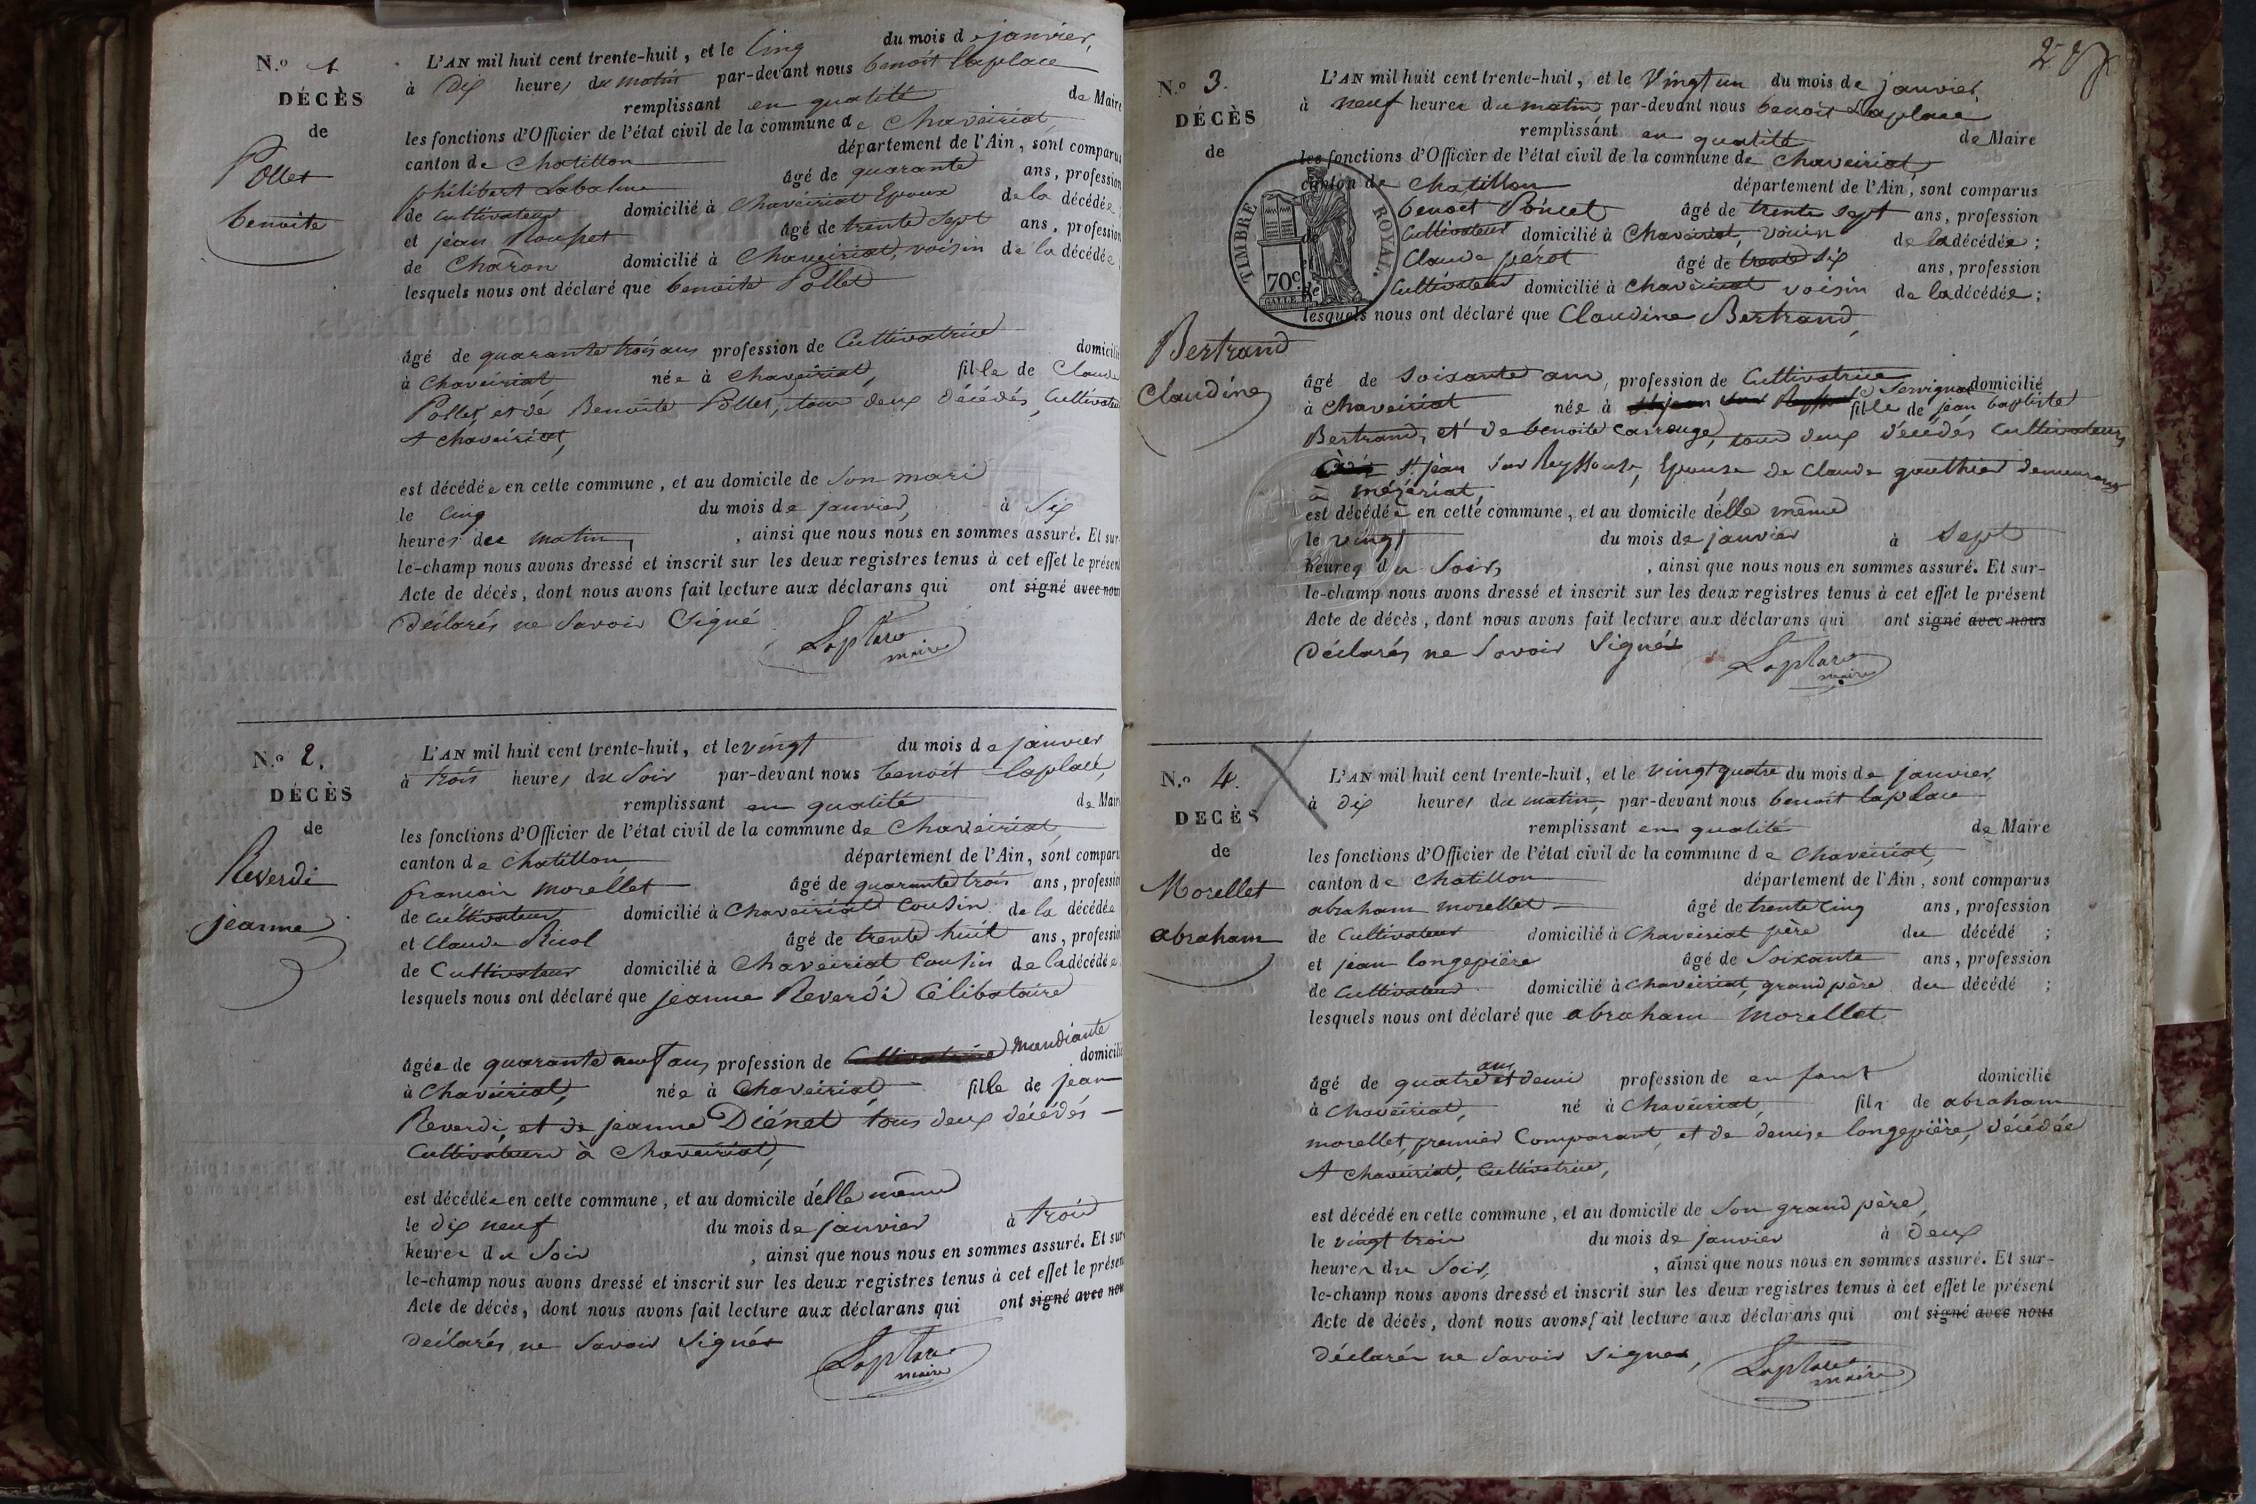 N.o 1
DÉCÈS
de
Pollet
benoite
L'AN mil huit cent trente-huit, et le Cinq du mois de janvier,
à Dix heures du matin par-devant nous benoit Laplace
remplissant en qualité de Maire
les fonctions d'Officier de l'état civil de la commune de Chaveiriat,
canton de Chatillon département de l'Ain, sont comparus
philibert Labalme âgé de quarante ans, profession
de Cultivateur domicilié à Chaveiriat Epoux de la décédée
et jean âgé de trente Sept ans, profession
de Charon domicilié à Chaveiriat, voisin de la décédée,
lesquels nous ont déclaré que benoite Pollet
âgé de quarante trois ans profession de Cultivatrice domicilié
à Chaveiriat, née à Chaveiriat, fille de Claude
Pollet, et de Benoite Pollet, tous deux décédés, Cultivateurs
A chaveiriat,
est décédée en cette commune, et au domicile de Son mari
le Cinq du mois de janvier, à Six
heures du matin, , ainsi que nous nous en sommes assuré. Et sur-
le-champ nous avons dressé et inscrit sur les deux registres tenus à cet effet le présent
Acte de décès, dont nous avons fait lecture aux déclarans qui ont signé avec nous
Déclarés ne Savoir Signé
Laplace
maire
N.o 2.
DÉCÈS
de
Reverdi
jeanne
L'AN mil huit cent trente-huit, et le vingt du mois de janvier
à trois heures du Soir par-devant nous benoit laplace,
remplissant en qualité de Maire
les fonctions d'Officier de l'état civil de la commune de Chaveiriat,
canton de Chatillon, département de l'Ain, sont comparus
francois morellet âgé de quarante trois ans, profession
de Cultivateur domicilié à Chaveiriat Cousin de la décédée
et Claude Ricol âgé de trente huit ans, profession
de Cultivateur domicilié à Chaveiriat Cousin de la décédée
lesquels nous ont déclaré que jeanne Reverdi Célibataire
âgée de quarante neuf ans profession de Cultivatrice mandiante domicilié
à Chaveiriat, née à Chaveiriat, fille de jean
Reverdi, et de jeanne Diénet tous deux décédés
Cultivateurs à Chaveiriat,
est décédée en cette commune, et au domicile d'elle même
le dix neuf du mois de janvier à trois
heures du Soir , ainsi que nous nous en sommes assuré. Et sur-
le-champ nous avons dressé et inscrit sur les deux registres tenus à cet effet le présent
Acte de décès, dont nous avons fait lecture aux déclarans qui ont signé avec nous
déclarés, ne Savoir Signés
Laplace
maire
N.o 3.
DÉCÈS
de
Bertrand
Claudine
L'AN mil huit cent trente-huit, et le Vingt un du mois de janvier,
à neuf heures du matin, par-devant nous benoit Laplace
remplissant en qualité de Maire
les fonctions d'Officier de l'état civil de la commune de Chaveiriat,
canton de Chatillon département de l'Ain, sont comparus
benoit Poncet âgé de trente sept ans, profession
de Cultivateur domicilié à Chaveiriat, voisin de la décédée ;
et Claude pérot âgé de trente Six ans, profession
de Cultivateur domicilié à Chaveiriat voisin de la décédée ;
lesquels nous ont déclaré que Claudine Bertrand,
TIMBRE ROYAL.
70 c.
âgé de Soixante ans, profession de Cultivatrice domicilié
à Chaveiriat née à St jean sur Reyssouse Servignat fille de jean baptiste
Bertrand, et de benoite Carrouge, tous deux décédés Cultivateurs
St jean Sur Reyssouse, Epouse de Claude gauthier demeurant
à mézériat,
est décédée en cette commune, et au domicile d'elle même
le vingt du mois de janvier à Sept
heures du Soir, , ainsi que nous nous en sommes assuré. Et sur-
le-champ nous avons dressé et inscrit sur les deux registres tenus à cet effet le présent
Acte de décès, dont nous avons fait lecture aux déclarans qui ont signé avec nous
Déclarés ne Savoir Signés
Laplace
maire
N.o 4.
DÉCÈS
de
Morellet
abraham
L'AN mil huit cent trente-huit, et le vingt quatre du mois de janvier,
à dix heures du matin, par-devant nous benoit laplace
remplissant en qualité de Maire
les fonctions d'Officier de l'état civil de la commune de Chaveiriat,
canton de Chatillon département de l'Ain, sont comparus
abraham morellet âgé de trente Cinq ans, profession
de Cultivateur domicilié à Chaveiriat père du décédé ;
et jean longepière âgé de Soixante ans, profession
de Cultivateur domicilié à Chaveiriat, grand père du décédé ;
lesquels nous ont déclaré que abraham morellet
âgé de quatre ans et demi profession de enfant domicilié
à Chaveiriat, né à Chaveiriat, fils de abraham
morellet, premier Comparant, et de denise longepière, décédée
A Chaveiriat, Cultivatrice,
est décédé en cette commune, et au domicile de Son grand père,
le vingt trois du mois de janvier à Deux
heures du Soir, , ainsi que nous nous en sommes assuré. Et sur-
le-champ nous avons dressé et inscrit sur les deux registres tenus à cet effet le présent
Acte de décès, dont nous avons fait lecture aux déclarans qui ont signé avec nous
Déclarés ne Savoir Signés,
Laplace
maire